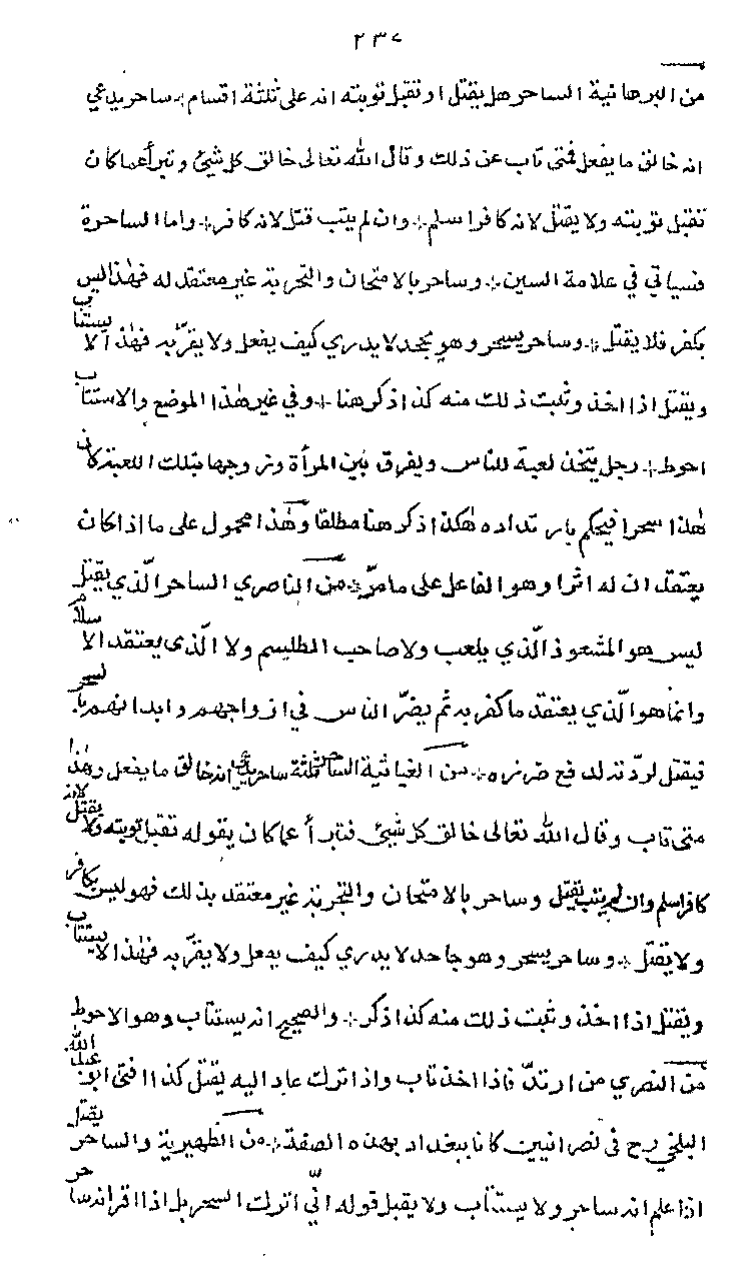 ٢٣٧
من البرهانية الساحر هل يقتل او تقبل توبته انه على ثلثة اقسام * ساحر يدعي
انه خالق ما يفعل فمتى تاب عن ذلك وقال الله تعالى خالق كل شيئ وتبرأ عما كان
تقبل توبته ولا يقتل لانه كافر اسلم * وان لم يتب قتل لانه كافر * واما الساحرة
فسياتي في علامة السين * وساحر بالامتحان والتجربة غير معتقد له فهذا ليس
بكفر فلا يقتل * وساحر يسحر وهو يجحد لا يدري كيف يفعل ولا يقرّ به فهذا لا يستتاب
ويقتل اذا اخذ وثبت ذلك منه كذا ذكر هنا * وفي غير هذا الموضع والاستتاب
احوط * رجل يتخذ لعبة للناس ويفرق بين المرأة وزوجها بتلك اللعبة كان
هذا سحرا فيحكم بارتداده هكذا ذكر هنا مطلقا وهذا محمول على ما اذا كان
يعتقد ان له اثرا وهو الفاعل على ما مرّ * من الناصري الساحر الّذي يقتل
ليس هو المشعوذ الّذي يلعب ولا صاحب الطليسم ولا الّذي يعتقد الاسلام
وانما هو الّذي يعتقد ما كفر به ثم يضرّ الناس في ازواجهم وابدانهم بالسحر
فيقتل لردّته لدفع ضرره * من الغياثية الساحر ثلثة ساحر يدعي انه خالق ما يفعل وهذا
متى تاب وقال الله تعالى خالق كل شيئ فتبرأ عما كان يقوله تقبل توبته ولا يقتل لانه
كافر اسلم وان لم يتب يقتل وساحر بالامتحان والتجربة غير معتقد بذلك فهو ليس بكافر
ولا يقتل * وساحر يسحر وهو جاحد لا يدري كيف يفعل ولا يقرّ به فهذا لا يستتاب
ويقتل اذا اخذ وثبت ذلك منه كذا ذكر * والصحيح انه يستتاب وهو الاحوط
من النصري من ارتدّ فاذا اخذ تاب واذا ترك عاد اليه يقتل كذا افتى ابو عبد الله
البلخي رح في نصرانيين كانا ببغداد بهذه الصفة * من الظهيرية والساحر يقتل
اذا علم انه ساحر ولا يستتاب ولا يقبل قوله انّي اترك السحر بل اذا اقر انه ساحر